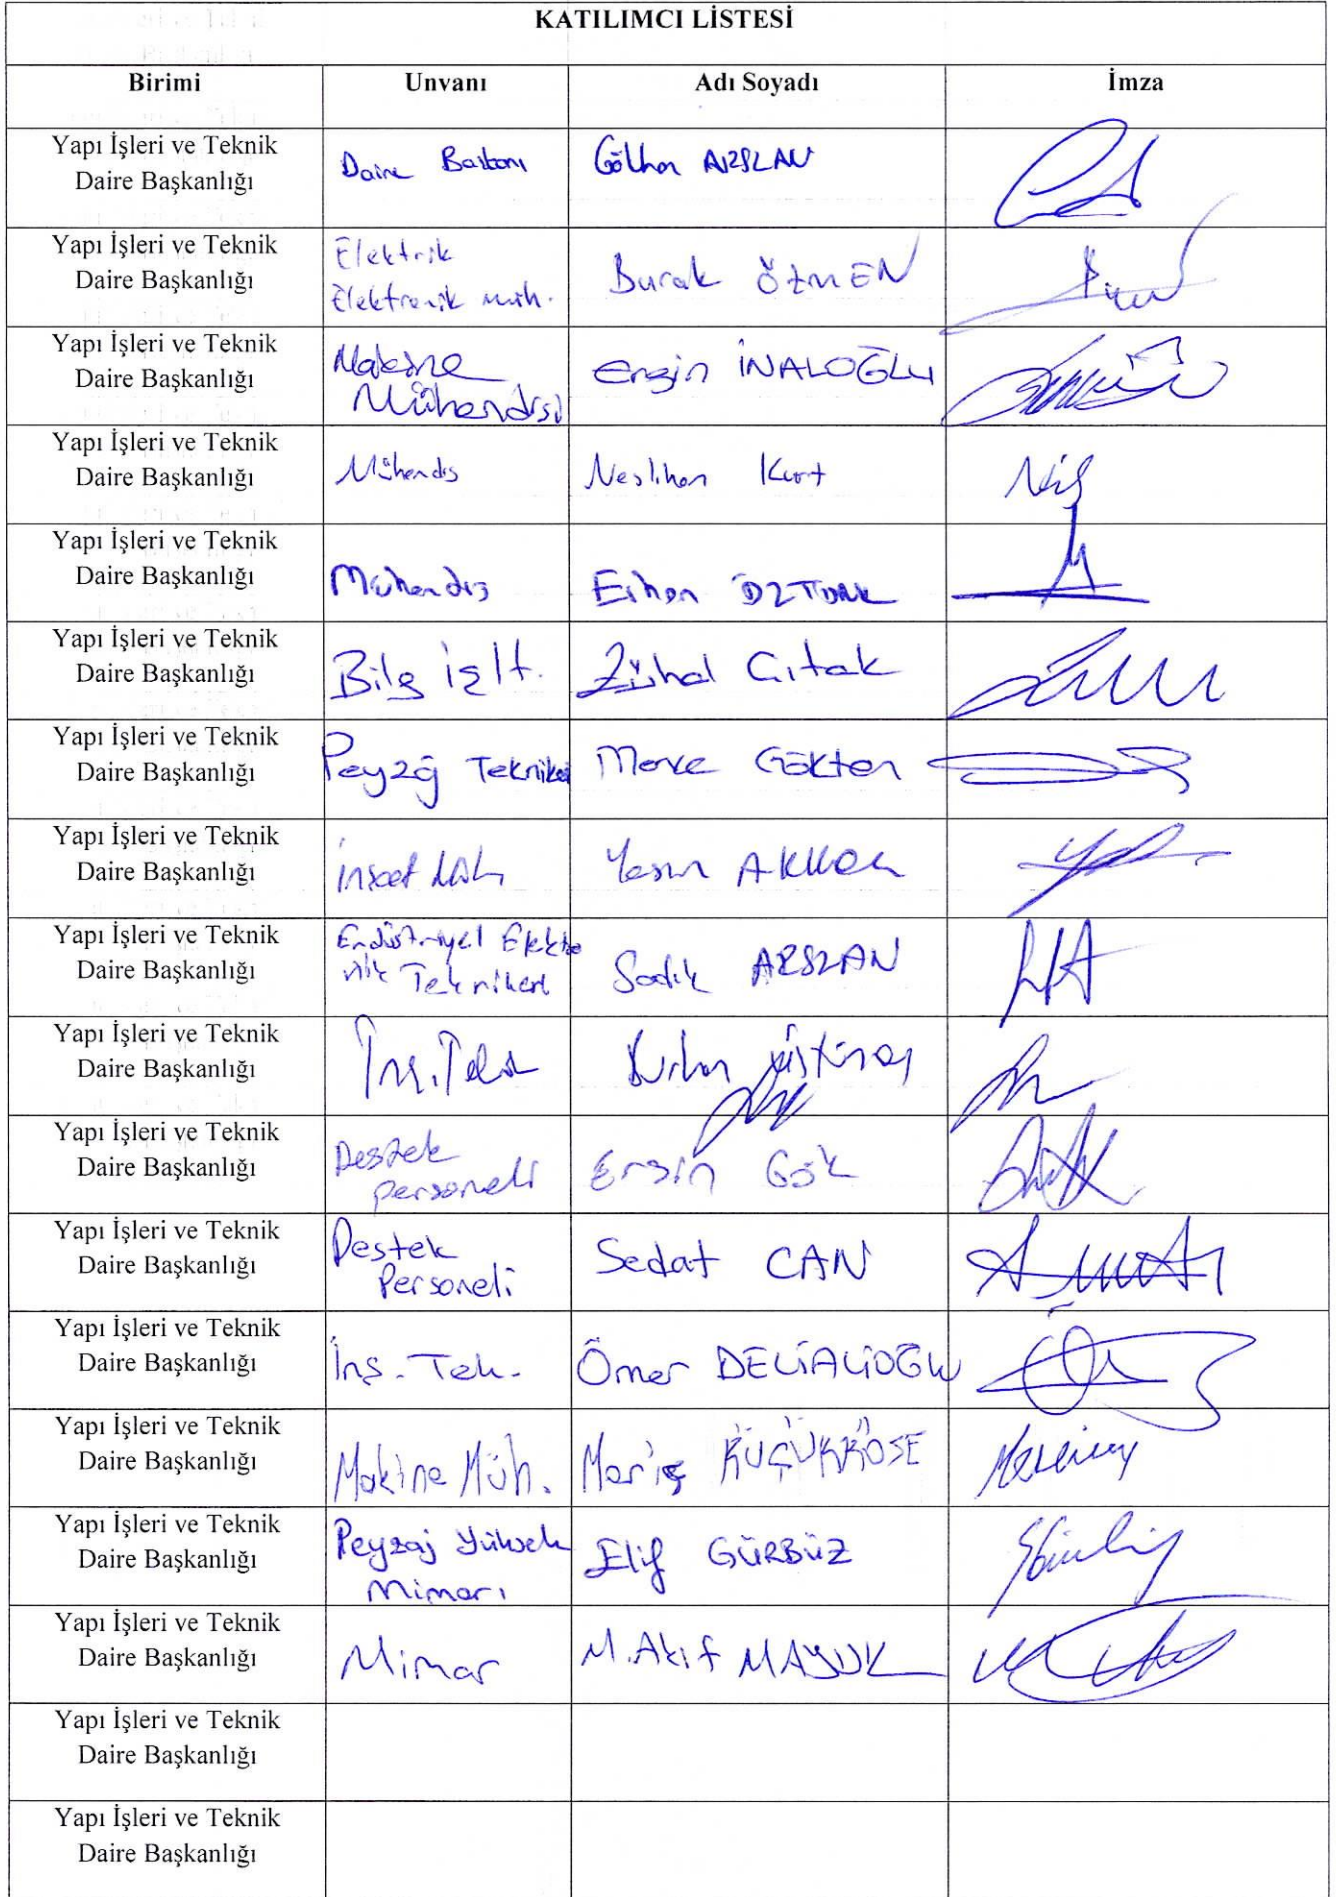 KATILIMCI LİSTESİ
Birimi Unvanı Adı Soyadı İmza
Yapı İşleri ve Teknik
Daire Başkanlığı
Daire Başkanı Gökhan ARSLAN
Yapı İşleri ve Teknik
Daire Başkanlığı
Elektrik
Elektronik Müh. Burak ÖZMEN
Yapı İşleri ve Teknik
Daire Başkanlığı
Makine
Mühendisi Engin İNALOĞLU
Yapı İşleri ve Teknik
Daire Başkanlığı
Mühendis Neslihan Kurt
Yapı İşleri ve Teknik
Daire Başkanlığı
Mühendis Erhan ÖZTÜRK
Yapı İşleri ve Teknik
Daire Başkanlığı
Bilg İşlt. Zühal Çıtak
Yapı İşleri ve Teknik
Daire Başkanlığı
Peyzaj Teknikeri Merve Gökten
Yapı İşleri ve Teknik
Daire Başkanlığı
İnşaat Müh Yasin
Yapı İşleri ve Teknik
Daire Başkanlığı
Endüstriyel Elektro
nik Teknikeri Sadık ARSLAN
Yapı İşleri ve Teknik
Daire Başkanlığı
İnş.
Yapı İşleri ve Teknik
Daire Başkanlığı
Destek
Personeli Ersin Gök
Yapı İşleri ve Teknik
Daire Başkanlığı
Destek
Personeli Sedat CAN
Yapı İşleri ve Teknik
Daire Başkanlığı
İnş. Tek. Ömer DELİALİOĞLU
Yapı İşleri ve Teknik
Daire Başkanlığı
Makine Müh. KÜÇÜKKÖSE
Yapı İşleri ve Teknik
Daire Başkanlığı
Peyzaj Yüksek
Mimarı Elif GÜRBÜZ
Yapı İşleri ve Teknik
Daire Başkanlığı
Mimar M. Akif MAYUK
Yapı İşleri ve Teknik
Daire Başkanlığı
Yapı İşleri ve Teknik
Daire Başkanlığı